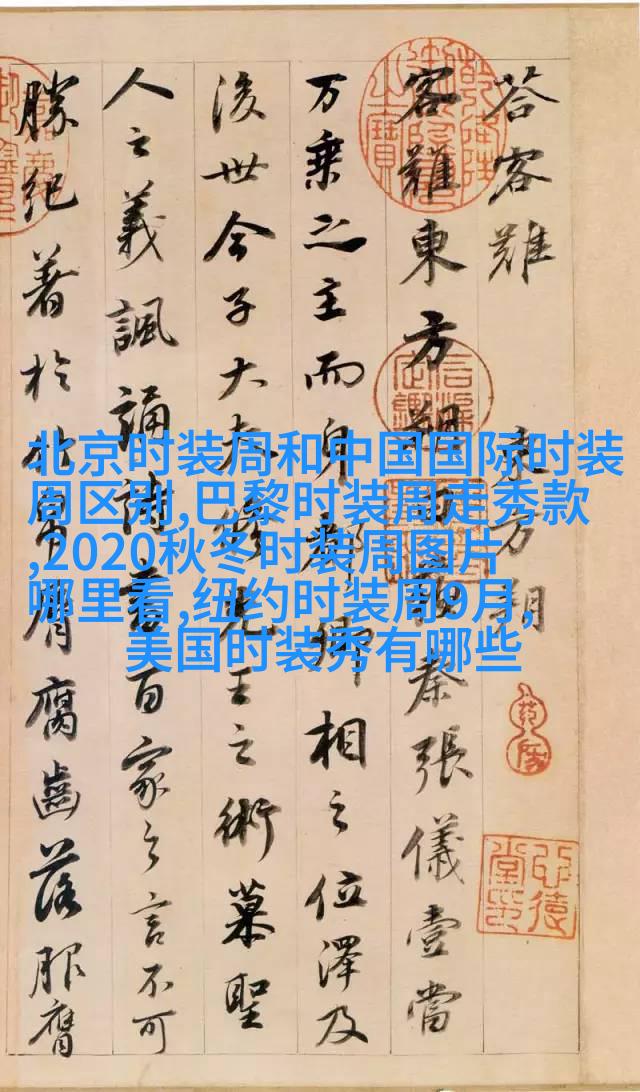 荅客難 東方朔
客難東方朔曰蘇秦張儀壹當
万乘之主而身都卿相之位澤及
後世今子大夫脩先王之術慕聖
人之義諷誦詩書百家之言不可
勝紀著於竹帛脣腐齒落服膺
北京时装周和中国国际时装
周区别,巴黎时装周走秀款
,2020秋冬时装周图片
哪里看,纽约时装周9月,
美国时装秀有哪些